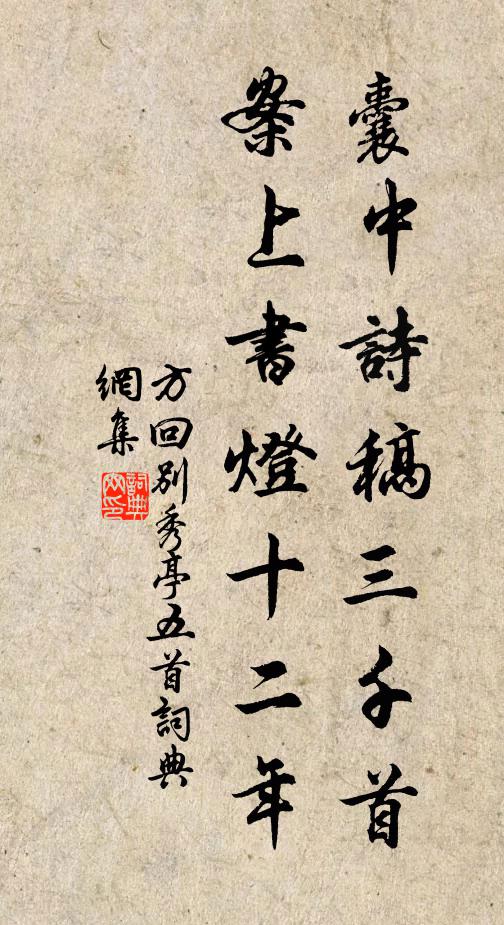 囊中詩稿三千首
案上書燈十二年
方回別秀亭五首詞典
網集
詞典
网印